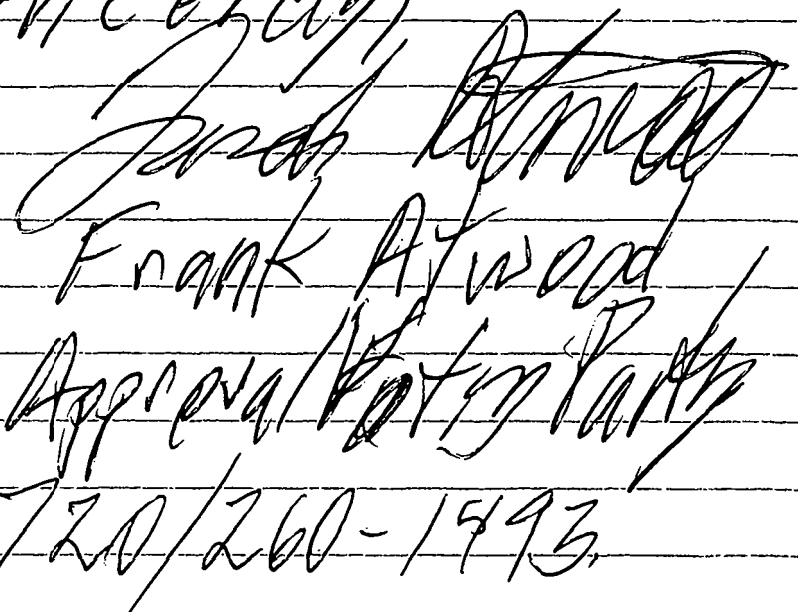 Frank Atwood
Frank Atwood
Approval Voting Party
720/260-1493